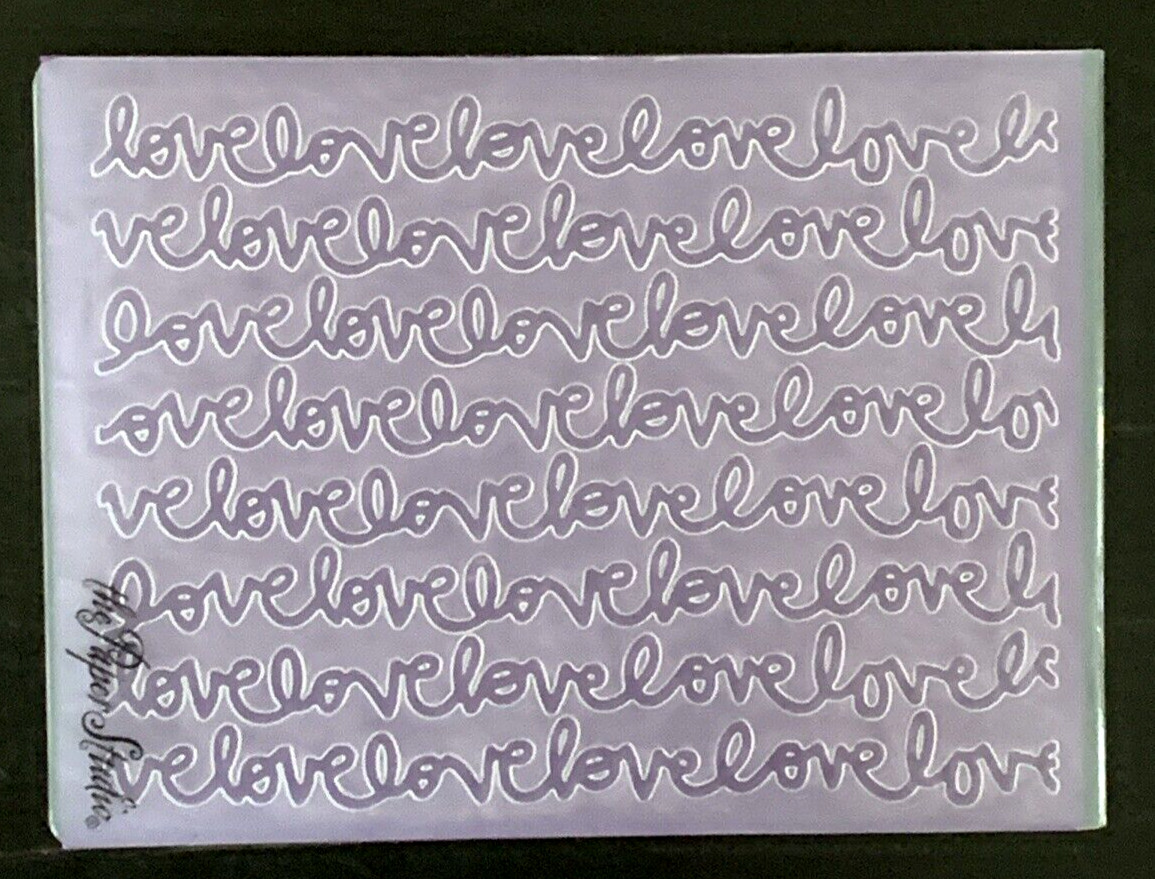 lovelovelovelovelovel
velovelovelovelovelove
lovelovelovelovelovel
ovelovelovelovelovelo
velovelovelovelovelove
lovelovelovelovelovel
lovelovelovelovelovel
velovelovelovelovelove
the Paper Studio®